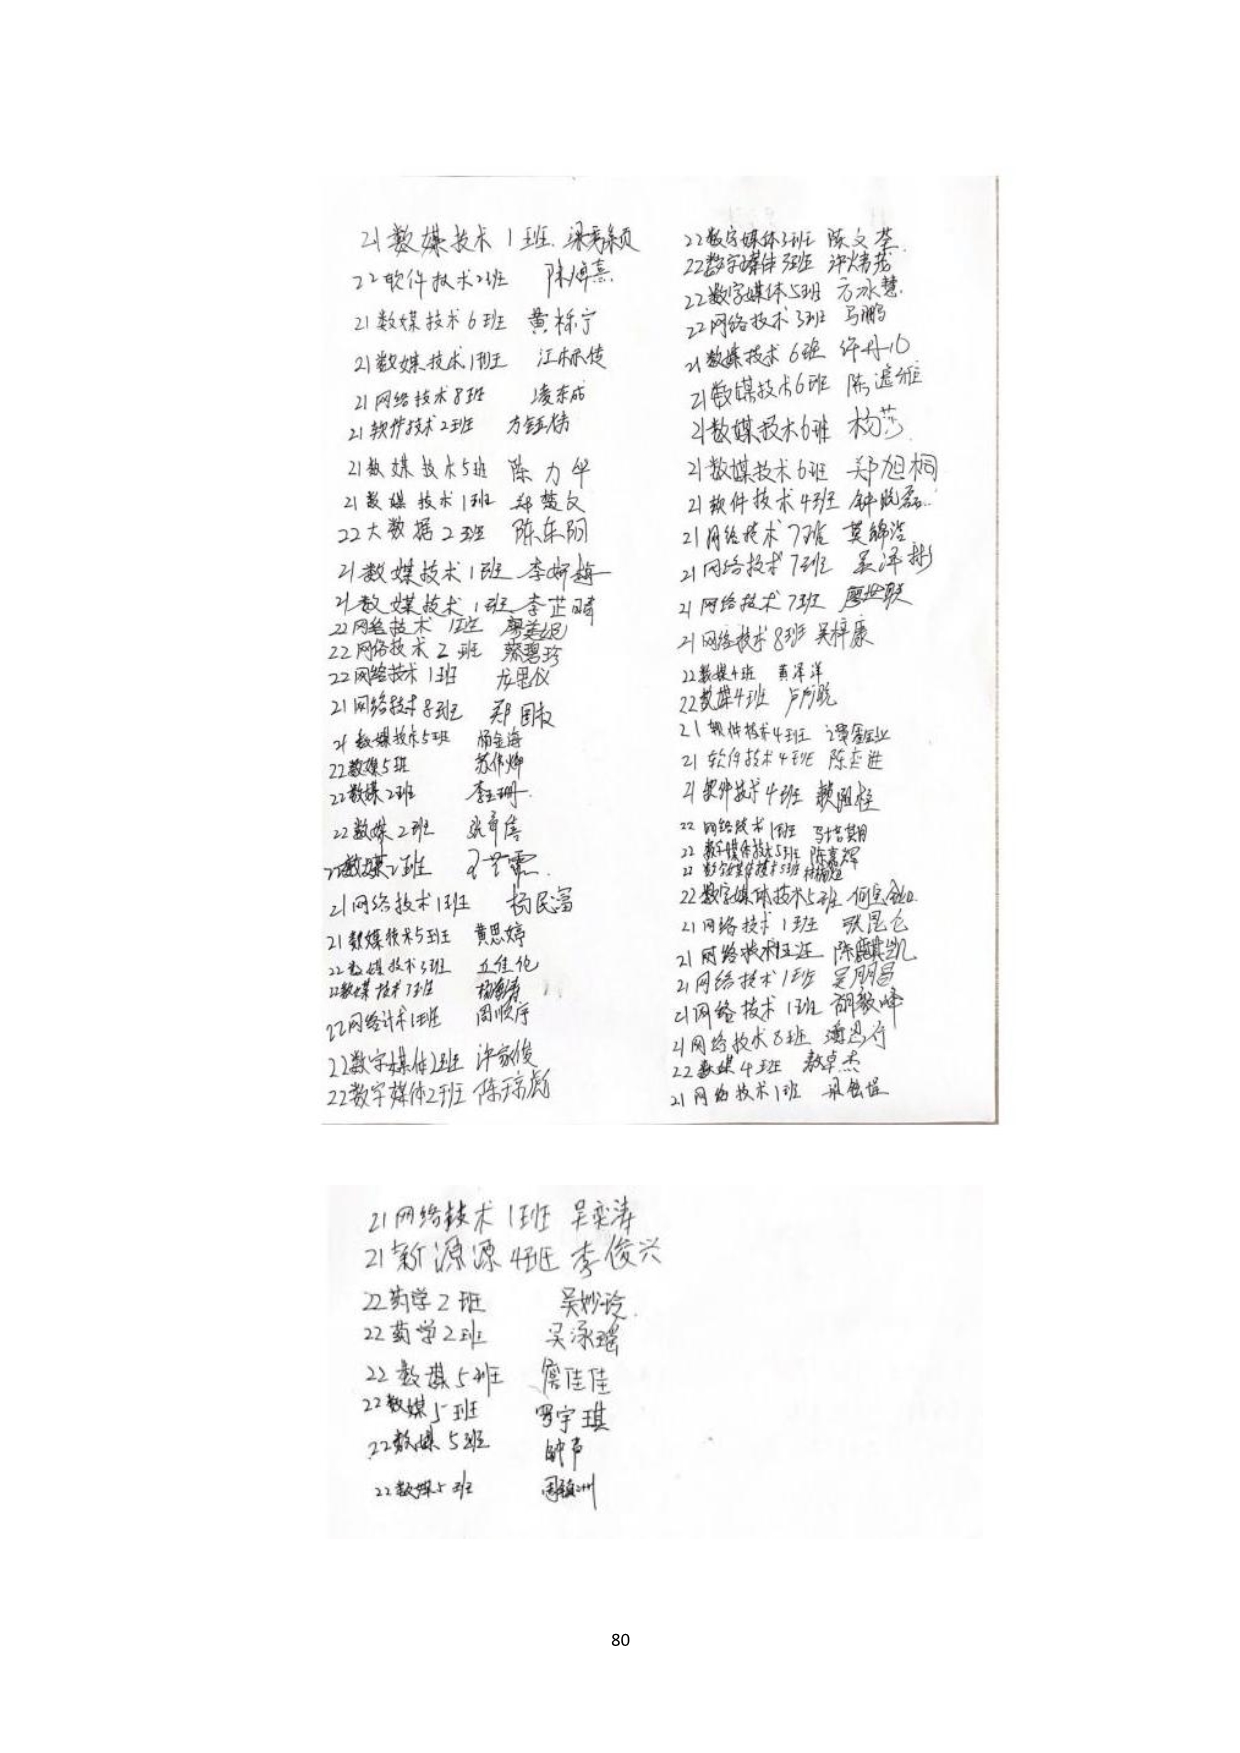 21数媒技术1班 梁秀颖
22软件技术2班 陈博熹
21数媒技术6班 黄栎宁
21数媒技术1班
21网络技术8班 凌东成
21软件技术2班 方钰伟
21数媒技术5班 陈力华
21数媒技术1班 郑楚文
22大数据2班 陈东阳
21数媒技术1班 李妍梅
21数媒技术1班 李芷晴
22网络技术1班 廖美妮
22网络技术2班 蔡碧珍
22网络技术1班 龙思仪
21网络技术8班 郑国权
21数媒技术5班 杨金海
22数媒5班 苏伟烨
22数媒2班 李玉珊
22数媒2班
22数媒2班
21网络技术1班 杨民富
21数媒技术5班 黄思婷
22数媒技术3班 丘佳伦
22数媒技术3班
22网络计术1班 周顺序
22数字媒体2班 许家俊
22数字媒体2班 陈琼彪
22数字媒体3班 陈文荃
22数字媒体3班 许炜茏
22数字媒体5班 方冰慧
22网络技术3班 马鹏
21数媒技术6班 许丹心
21数媒技术6班
21数媒技术6班 杨莎
21数媒技术6班 郑旭桐
21软件技术4班 钟晓磊
21网络技术7班 莫锦浩
21网络技术7班 吴泽彬
21网络技术7班 廖世联
21网络技术8班 吴梓康
22数媒4班 黄泽洋
22数媒4班
21软件技术4班
21软件技术4班 陈志进
21软件技术4班
22网络技术1班
22数字媒体技术5班 陈嘉辉
22数字媒体技术5班
22数字媒体技术5班
21网络技术1班 张昆仑
21网络技术1班 陈麒凯
21网络技术1班 吴朋昌
21网络技术1班 胡毅峰
21网络技术8班
22数媒4班
21网络技术1班
21网络技术1班 吴奕涛
21新源源4班 李俊兴
22药学2班 吴妙玲
22药学2班 吴泳瑶
22数媒5班 詹佳佳
22数媒5班 罗宇琪
22数媒5班 钟声
22数媒5班 周镇洲
80